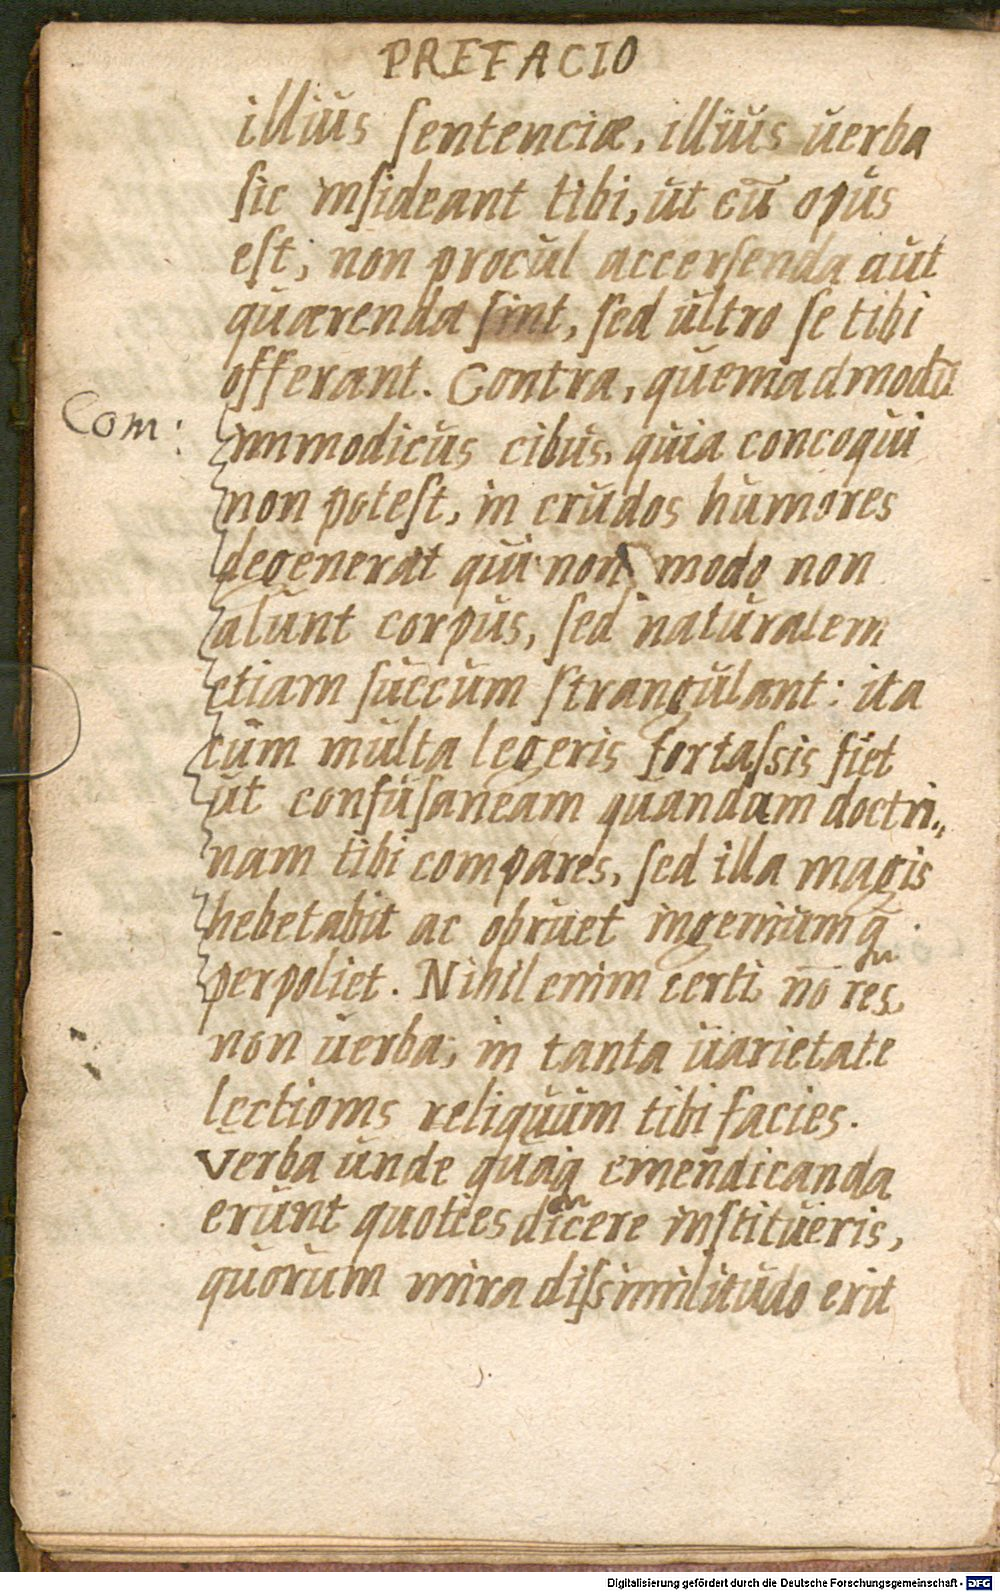 PREFACIO
illius sentenciæ, illius uerba
sic insideant tibi, ut cū opus
est, non procul accersenda aut
quærenda sint, sed ultro se tibi
offerant. Contra, quemadmodū
Com:
immodicus cibus, quia concoqui
non potest, in crudos humores
degenerat qui non modo non
alunt corpus, sed naturalem
etiam succum strangulant: ita
cum multa legeris fortassis fiet
ut confusaneam quandam doctri„
nam tibi compares, sed illa magis
hebetabit ac obruet ingenium q̄
perpoliet. Nihil enim certi nō res
non uerba, in tanta uarietate
lectionis reliquum tibi facies.
Verba unde quaq emendicanda
erunt quoties dicere institueris,
quorum mira dissimilitudo erit
Digitalisierung gefördert durch die Deutsche Forschungsgemeinschaft - DFG